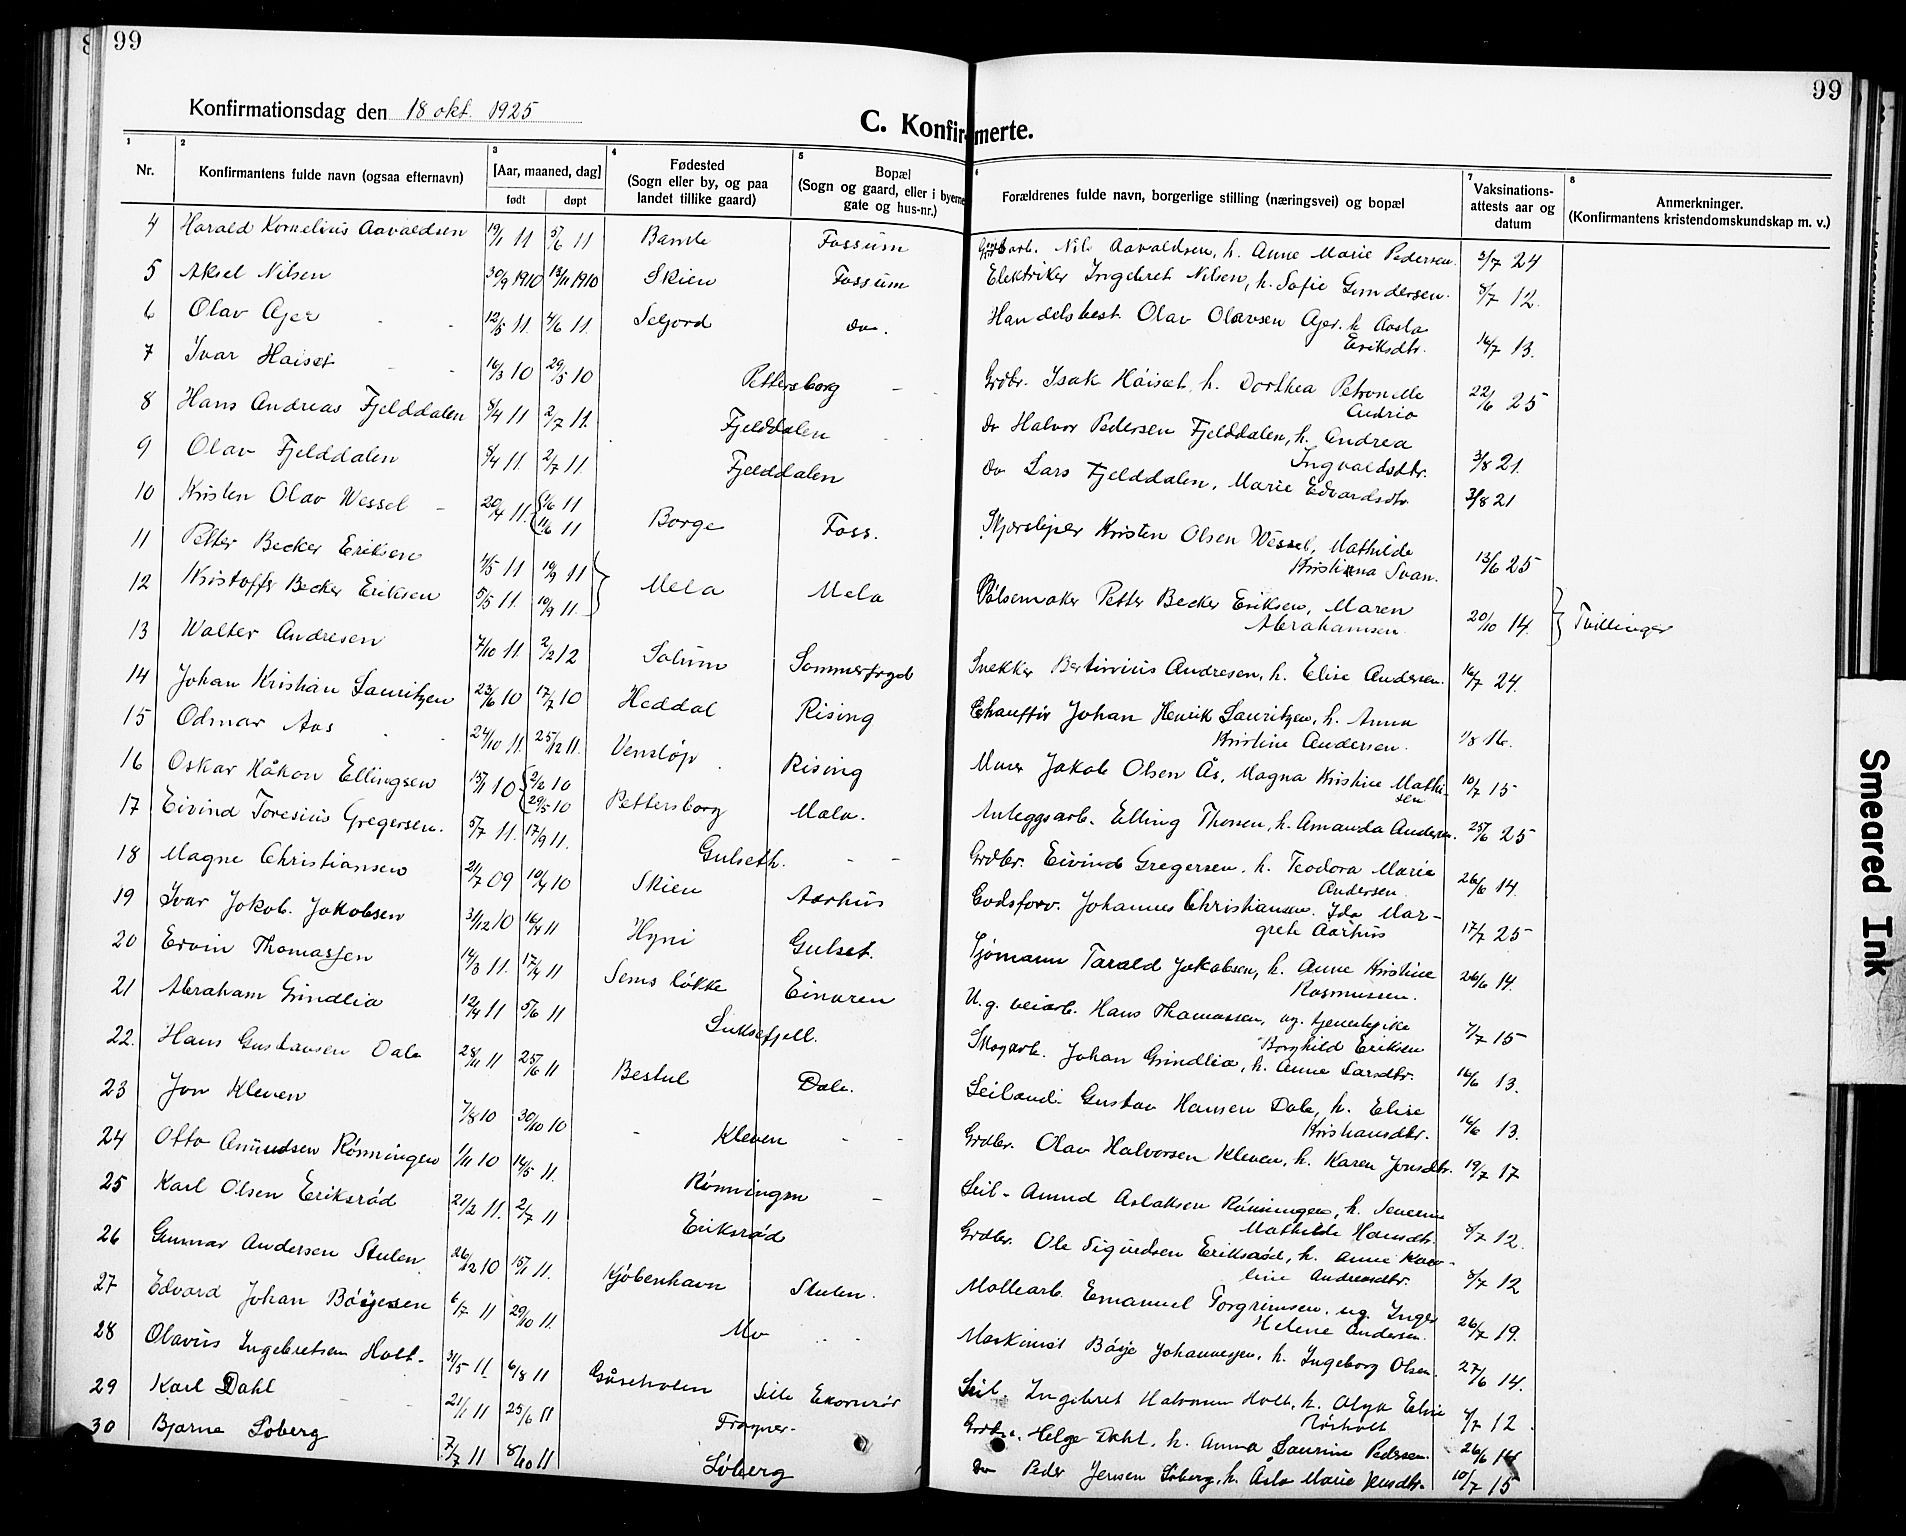 99
99
Konfirmationsdag den 18 okt. 1925
C. Konfirmerte.
1 2 3 4 5 6 7 8
Nr. Konfirmantens fulde navn (ogsaa efternavn) [Aar, maaned, dag] født døpt Fødested (Sogn eller by, og paa landet tillike gaard) Bopæl (Sogn og gaard, eller i byerne gate og hus-nr.) Forældrenes fulde navn, borgerlige stilling (næringsvei) og bopæl Vaksinations-attests aar og datum Anmerkninger. (Konfirmantens kristendomskundskap m. v.)
4 Harald Kornelius Aavaldsen 19/1 11 5/6 11 Bamle Fossum arb. Nils Aavaldsen, h. Anne Marie Pedersen. 3/7 24
5 Aksel Nilsen 30/9 1910 13/11 1910 Skien Fossum Elektriker Ingebret Nilsen, h. Sofie Gundersen. 8/7 12.
6 Olav Ajer 12/5 11. 4/6 11. Seljord do. Handelsbest. Olav Olavsen Ajer. h. Aasla
Eriksdtr. 16/7 13.
7 Ivar Haiset 16/3 10 29/5 10 Pettersborg Grdbr. Isak Håiset, h. Dorthea Petronelle
Andria 22/6 25
8 Hans Andreas Fjelddalen 8/4 11 2/7 11. Fjelddalen Do Halvor Pedersen Fjelddalen, h. Andrea
Ingvaldsdtr. 3/8 21.
9 Olav Fjelddalen 5/4 11. 2/7 11 Fjelddalen Do Lars Fjelddalen, Marie Edvardsdtr. 3/8 21
10 Kristen Olav Wessel 20/4 11. 1/6 11
11/6 11 Borge Foss. Skjørsliper Kristen Olsen Wessel, Mathilde
Kristiana Svan. 13/6 25
11 Petter Becker Eriksen 4/5 11 10/9 11
12 Kristoffer Becker Eriksen 5/5 11. 10/9 11. Mela Mela Pølsemaker Petter Becker Eriksen, Maren
Abrahamsen. 20/10 14. Tvillinger
13 Walter Andresen 7/10 11 2/2 12 Solum Sommerfryd Snekker Bertinius Andresen, h. Elise Andersen. 16/7 24.
14 Johan Kristian Lauritzen 23/6 10 17/7 10 Heddal Rising Chauffør Johan Henrik Lauritzen, h. Anna
Kristine Andersen. 1/8 16.
15 Odmar Aas 24/10 11. 25/12 11. Venstøp Rising Murer Jakob Olsen Ås, Magna Kristine Mathi-
sen 10/7 15
16 Oskar Håkon Ellingsen 15/1 10 2/2 10
29/5 10 Pettersborg Mæla. Anleggsarb. Elling Thosen, h. Amanda Andersen. 25/6 25
17 Eivind Toresius Gregersen. 5/7 11. 17/9 11. Gulseth. Grdbr. Eivind Gregersen, h. Teodora Marie
Andersen. 26/6 14.
18 Magne Christiansen 21/7 09 10/4 10 Skien Aarhus Godsforv. Johannes Christiansen. Ida Mar-
grete Aarhus 17/7 25
19 Ivar Jakob. Jakobsen 31/12 10 16/4 11 Hyni Gulset. Sjømann Tarald Jakobsen, h. Anne Kristine
Rasmussen. 26/6 14.
20 Ervin Thomassen 14/3 11. 17/4 11 Sems løkke Einaren U. g. veiarb. Hans Thomassen, ug. tjenestepike
Borghild Eriksen 7/7 15
21 Abraham Grindlia 12/4 11 5/6 11 Luksefjell. Skogarb. Johan Grindlia, h. Anne Larsdtr. 16/6 13.
22. Hans Gustavsen Dale 28/4 11 25/6 11 Bestul Dale. Leiland. Gustav Hansen Dale, h. Elise
Kristiansdtr. 16/6 13.
23 Jon Kleven 7/8 10 30/10 10 Kleven Grdbr. Olav Halvorsen Kleven, h. Karen Jonsdtr. 19/7 17
24 Otto Amundsen Rønningen 1/11 10 14/5 11. Rønningen Leil. Amund Aslaksen Rønningen, h. Severine
Mathilde Hansdtr. 8/7 12.
25 Karl Olsen Eriksrød 21/2 11. 2/7 11 Eriksrød Grdbr. Ole Sigurdsen Eriksrød, h. Anne Karo-
line Andreasdtr. 8/7 12
26 Gunnar Andersen Stulen 26/12 10 15/1 11. Kjøbenhavn Stulen. Møllearb. Emanuel Torgrimsen, ug. Inger
Helene Andersen. 26/7 19.
27 Edvard Johan Bøijesen 6/7 11 29/10 11. Mo Maskinist Bøije Johannesen, h. Ingeborg Olsen. 27/6 14.
28 Olavus Ingebretsen Holt. 31/5 11. 6/8 11 Gåseholen Lille Ekornrør Leil. Ingebret Halvorsen Holt, h. Olga Elise
Rørholt 4/7 12
29 Karl Dahl 21/1 11 25/6 11 Frogner. Grdbr. Helge Dahl, h. Anna Laurine Pedersen. 26/6 14
30 Bjarne Løberg 7/7 11 8/10 11 Løberg Do Peder Jensen Løberg, h. Åsla Marie Jensdtr. 10/7 15
Smeared Ink